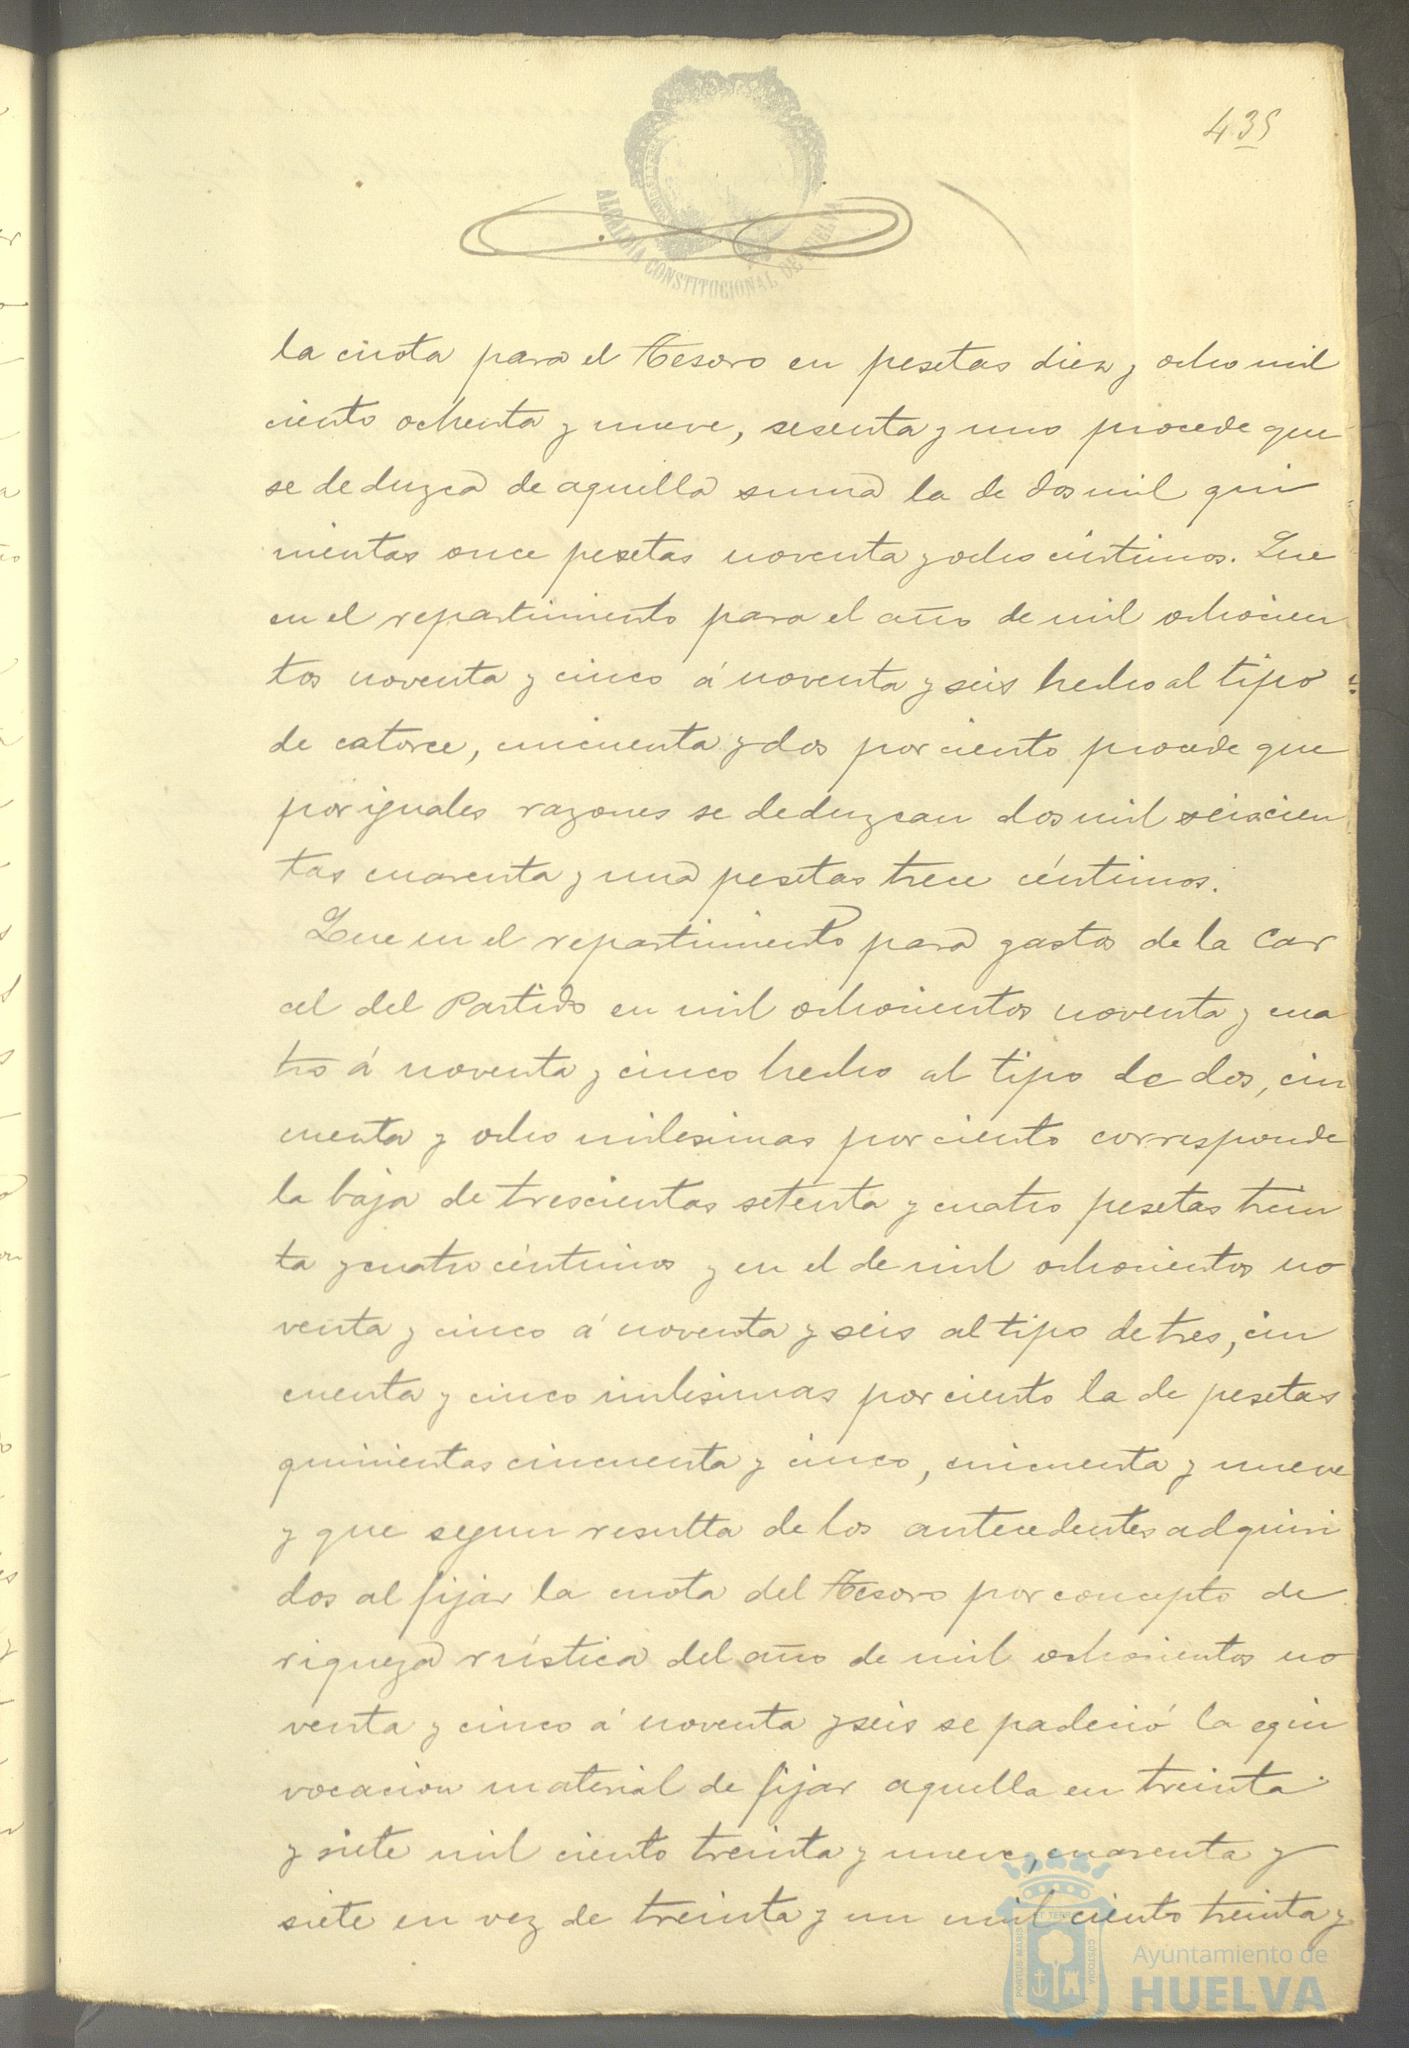 435
ALCALDIA CONSTITUCIONAL DE HUELVA
la cuota para el Tesoro en pesetas diez y ocho mil
ciento ochenta y nueve, sesenta y uno procede que
se deduzca de aquella suma la de dos mil qui
nientas once pesetas noventa y ocho céntimos. Que
en el repartimiento para el año de mil ochocien
tos noventa y cinco á noventa y seis hecho al tipo
de catorce, cincuenta y dos por ciento procede que
por iguales razones se deduzcan dos mil seiscien
tas cuarenta y una pesetas trece céntimos.
Que en el repartimiento para gastos de la Car
cel del Partido en mil ochocientos noventa y cua
tro á noventa y cinco hecho al tipo de dos, cin
cuenta y ocho milesimas por ciento corresponde
la baja de trescientas setenta y cuatro pesetas trein
ta y cuatro céntimos y en el de mil ochocientos no
venta y cinco á noventa y seis al tipo de tres, cin
cuenta y cinco milesimas por ciento la de pesetas
quinientas cincuenta y cinco, cincuenta y nueve
y que segun resulta de los antecedentes adquiri
dos al fijar la cuota del Tesoro por concepto de
riqueza rústica del año de mil ochocientos no
venta y cinco á noventa y seis se padeció la equi
vocacion material de fijar aquella en treinta
y siete mil ciento treinta y nueve, cuarenta y
siete en vez de treinta y un mil ciento treinta y
PORTUS MARIS ET TERRAE CUSTODIA
Ayuntamiento de
HUELVA